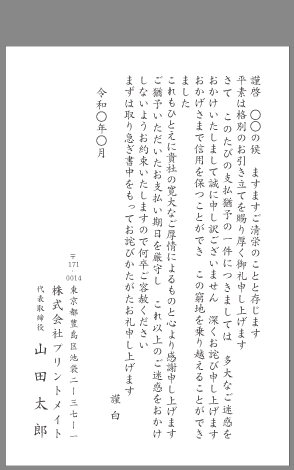 謹啓　〇〇の候　ますますご清栄のことと存じます
平素は格別のお引き立てを賜り厚く御礼申し上げます
さて　このたびの支払猶予の一件につきましては　多大なご迷惑を
おかけいたしまして誠に申し訳ございません　深くお詫び申し上げます
おかげさまで信用を保つことができ　この窮地を乗り越えることができ
ました
これもひとえに貴社の寛大なご厚情によるものと心より感謝申し上げます
ご猶予いただいたお支払い期日を厳守し　これ以上のご迷惑をおかけ
しないようお約束いたしますので何卒ご容赦ください
まずは取り急ぎ書中をもってお詫びかたがたお礼申し上げます
謹白
令和〇年〇月
〒171-0014
東京都豊島区池袋二ー三七ー一
株式会社プリントメイト
代表取締役　山田太郎